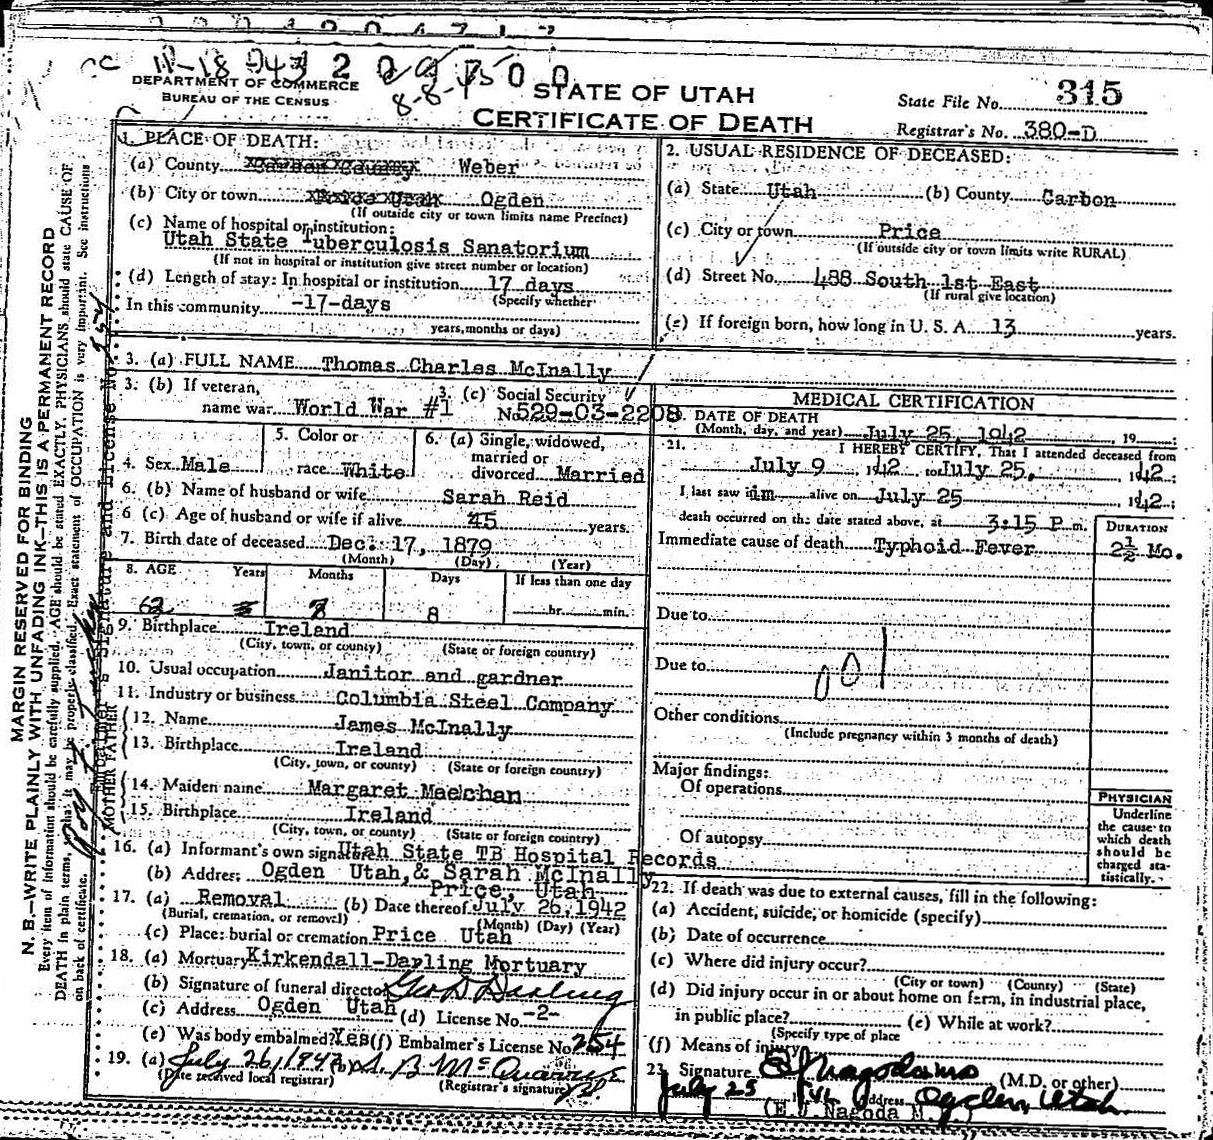 11-18 943 2 0 9 7 5 0 0
8-8-
DEPARTMENT OF COMMERCE
BUREAU OF THE CENSUS
STATE OF UTAH
CERTIFICATE OF DEATH
State File No. 315
Registrar's No. 380-D
1. PLACE OF DEATH:
(a) County Carbon County Weber
(b) City or town Price Utah Ogden
(If outside city or town limits name Precinct)
(c) Name of hospital or institution:
Utah State Tuberculosis Sanatorium
(If not in hospital or institution give street number or location)
(d) Length of stay: In hospital or institution 17 days
(Specify whether
In this community -17-days
years, months or days)
2. USUAL RESIDENCE OF DECEASED:
(a) State Utah (b) County Carbon
(c) City or town Price
(If outside city or town limits write RURAL)
(d) Street No. 488 South 1st East
(If rural give location)
(e) If foreign born, how long in U. S. A. 13 years.
3. (a) FULL NAME Thomas Charles McInally
3. (b) If veteran,
name war World War #1
3. (c) Social Security
No. 529-03-2208
4. Sex Male
5. Color or
race White
6. (a) Single, widowed,
married or
divorced Married
6. (b) Name of husband or wife Sarah Reid
6 (c) Age of husband or wife if alive 45 years.
7. Birth date of deceased Dec. 17, 1879
(Month) (Day) (Year)
8. AGE Years Months Days If less than one day
62 7 8 hr. min.
9. Birthplace Ireland
(City, town, or county) (State or foreign country)
10. Usual occupation Janitor and gardner
11. Industry or business Columbia Steel Company
FATHER
12. Name James McInally
13. Birthplace Ireland
(City, town, or county) (State or foreign country)
MOTHER
14. Maiden name Margaret Maelchan
15. Birthplace Ireland
(City, town, or county) (State or foreign country)
16. (a) Informant's own signature Utah State TB Hospital Records
(b) Address Ogden Utah, & Sarah McInally
Price, Utah
17. (a) Removal (b) Date thereof July 26, 1942
(Burial, cremation, or removal) (Month) (Day) (Year)
(c) Place: burial or cremation Price Utah
18. (a) Mortuary Kirkendall-Darling Mortuary
(b) Signature of funeral director Geo D Darling
(c) Address Ogden Utah (d) License No. -2-
(e) Was body embalmed? Yes (f) Embalmer's License No. 254
19. (a) July 26, 1942 (b)
(Date received local registrar) (Registrar's signature)
MEDICAL CERTIFICATION
20. DATE OF DEATH
(Month, day, and year) July 25, 1942, 19
21. I HEREBY CERTIFY, That I attended deceased from
July 9, 1942 to July 25, 1942.;
I last saw im alive on July 25 1942.;
death occurred on the date stated above, at 3:15 P m.
DURATION
Immediate cause of death Typhoid Fever 2½ Mo.
Due to
Due to
001
Other conditions
(Include pregnancy within 3 months of death)
Major findings:
Of operations
Of autopsy
PHYSICIAN
Underline
the cause to
which death
should be
charged sta-
tistically.
22. If death was due to external causes, fill in the following:
(a) Accident, suicide, or homicide (specify)
(b) Date of occurrence
(c) Where did injury occur?
(City or town) (County) (State)
(d) Did injury occur in or about home on farm, in industrial place,
in public place? (e) While at work?
(Specify type of place
(f) Means of injury
23. Signature (M.D. or other)
July 25 1942 Address Ogden, Utah.
MARGIN RESERVED FOR BINDING
N. B.—WRITE PLAINLY WITH UNFADING INK—THIS IS A PERMANENT RECORD
Every item of information should be carefully supplied. AGE should be stated EXACTLY. PHYSICIANS should state CAUSE OF
DEATH in plain terms, so that it may be properly classified. Exact statement of OCCUPATION is very important. See instructions
on back of certificate.
Embalmer's Signature and License No.